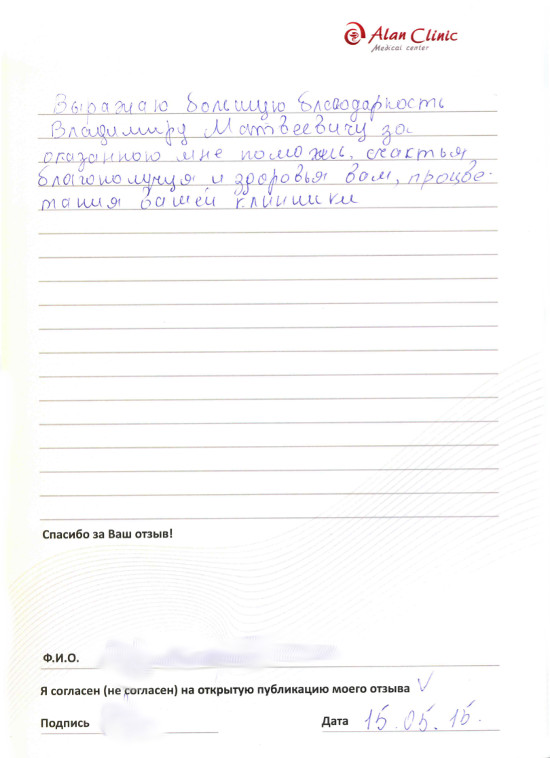 Alan Clinic
Medical center
Выражаю большую благодарность
Владимиру Матвеевичу за
оказанною мне помощь, счастья
благополучуя и здоровья вам, процве-
тания вашей клиники
Спасибо за Ваш отзыв!
Ф.И.О.
Я согласен (не согласен) на открытую публикацию моего отзыва V
Подпись
Дата 15.05.15.